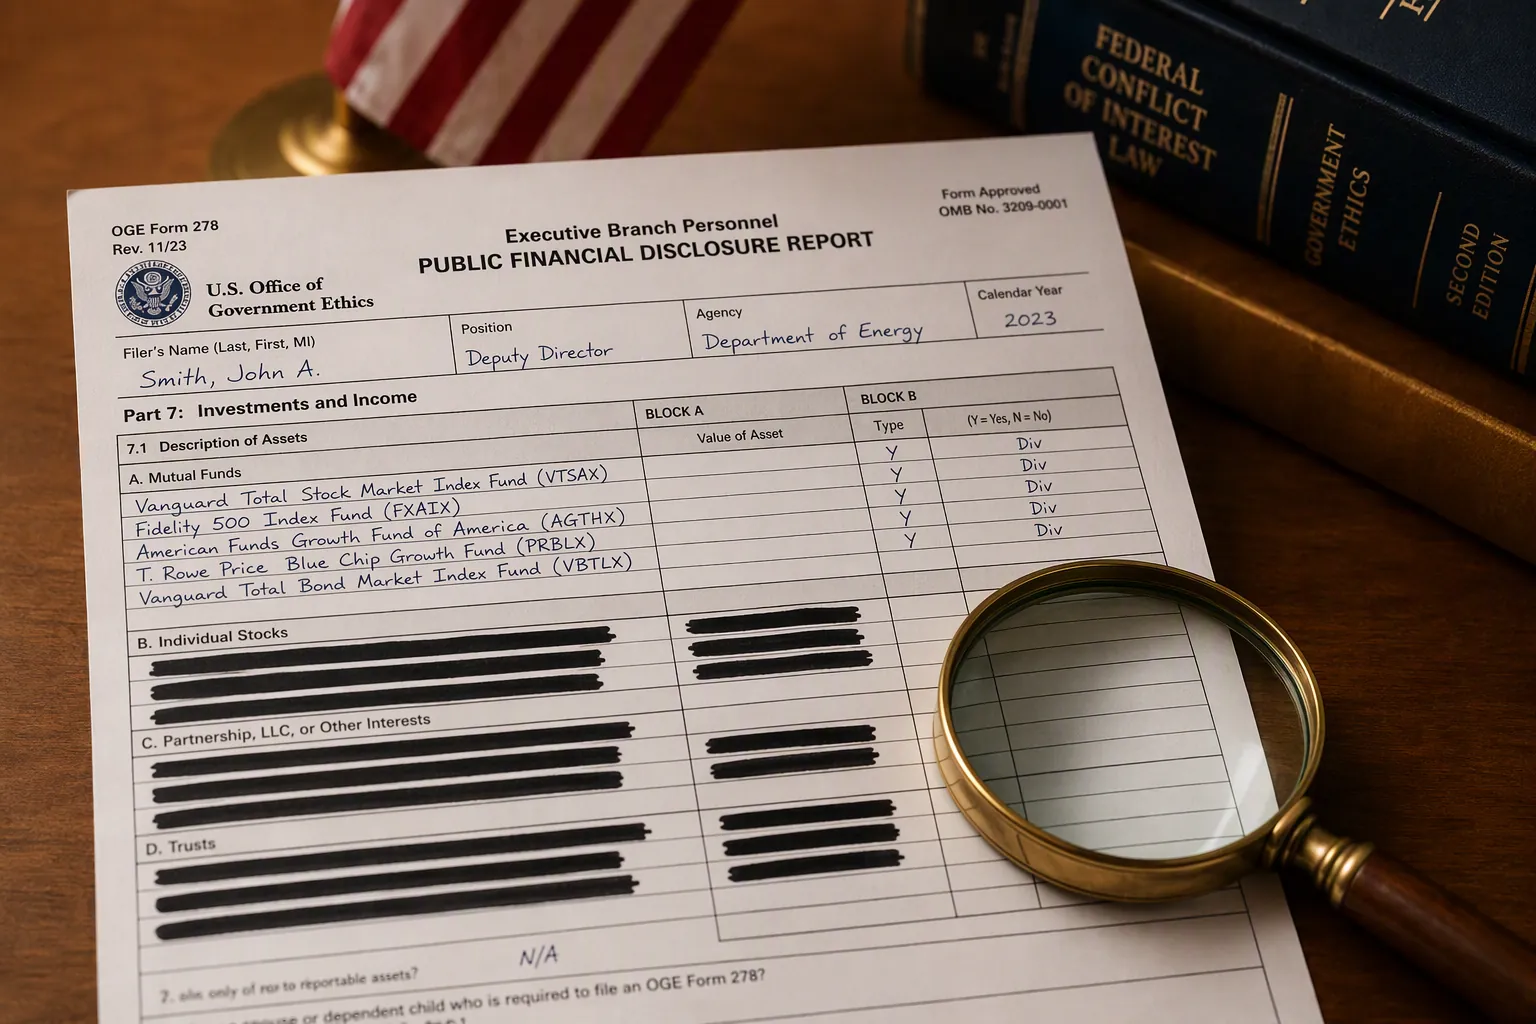 FEDERAL
CONFLICT
OF INTEREST
LAW
GOVERNMENT
ETHICS
SECOND
EDITION
OGE Form 278
Rev. 11/23
Executive Branch Personnel
PUBLIC FINANCIAL DISCLOSURE REPORT
Form Approved
OMB No. 3209-0001
U.S. Office of
Government Ethics
Filer's Name (Last, First, MI)
Smith, John A.
Position
Deputy Director
Agency
Department of Energy
Calendar Year
2023
Part 7: Investments and Income
BLOCK A
BLOCK B
7.1 Description of Assets
Value of Asset
Type
(Y = Yes, N = No)
A. Mutual Funds
Y Div
Vanguard Total Stock Market Index Fund (VTSAX)
Y Div
Fidelity 500 Index Fund (FXAIX)
Y Div
American Funds Growth Fund of America (AGTHX)
Y Div
T. Rowe Price Blue Chip Growth Fund (PRBLX)
Y Div
Vanguard Total Bond Market Index Fund (VBTLX)
B. Individual Stocks
C. Partnership, LLC, or Other Interests
D. Trusts
N/A
7. only of reportable assets?
or dependent child who is required to file an OGE Form 278?